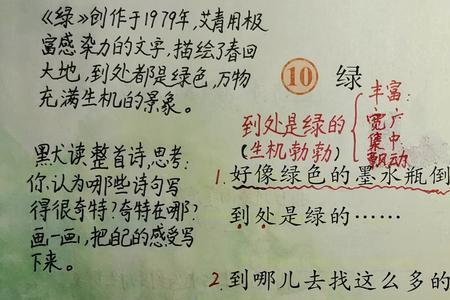 《绿》创作于1979年,艾青用极
富感染力的文字,描绘了春回
大地,到处都是绿色,万物
充满生机的景象。
默读整首诗,思考:
你认为哪些诗句写
得很奇特?奇特在哪?
画一画,把自己的感受写
下来。
10 绿
到处是绿的
(生机勃勃)
丰富:
宽广
集中
飘动
1.好像绿色的墨水瓶倒
到处是绿的……
2.到哪儿去找这么多的